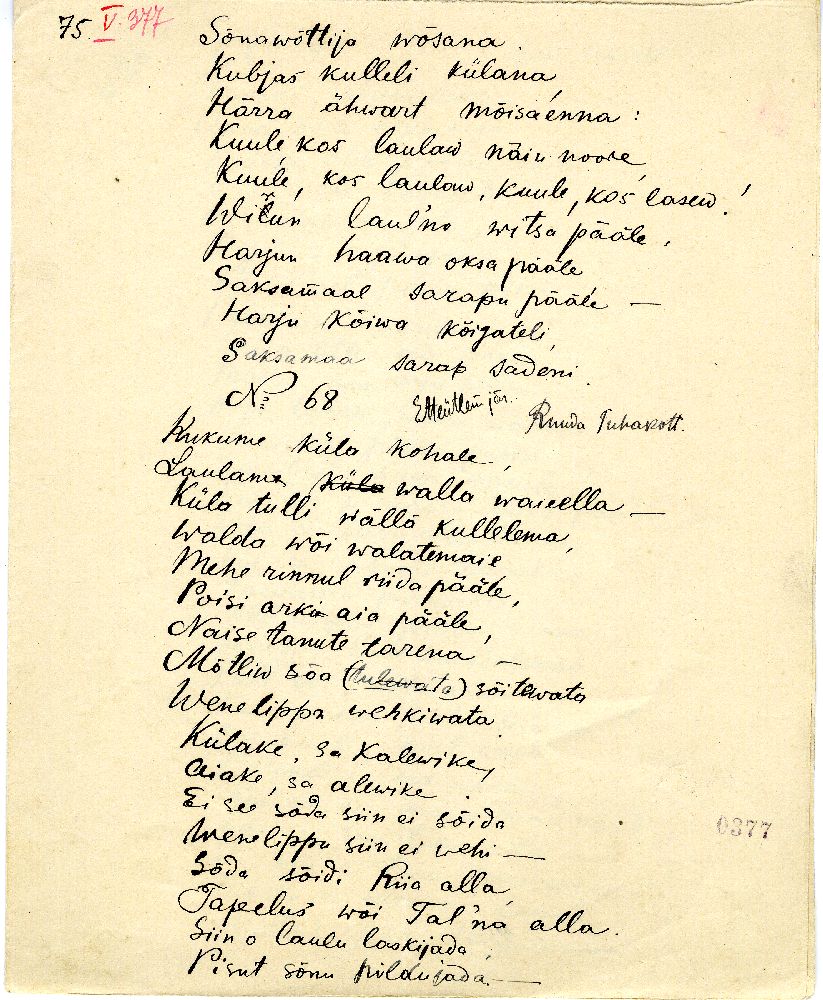 75. V. 377
Sõnawõttija wõsana.
Kubjas kulleli külana,
Härra ähwart mõisaenna:
Kuule, kos laulaw näiu noore,
Kuule, kos laulaw, kuule, kos lasew!
Wiĺun laul'no witsa pääle,
Harjun haawa oksa pääle
Saksamaal sarapu pääle —
Harju kõiwa kõigateli,
Saksamaa sarap sadeni.
№ 68
Ruuda Tuhakott.
Kukume küla kohale,
Laulame küla walla waieella —
Küla tulli wälla kullelema,
Walda wõi walatemaie
Mehe rinnul riida pääle,
Poisi arku aia pääle,
Naise tanute tarena —
Mõtliw sõa (tulewata) sõitewata
Wene lippu wehkiwata
Külake, sa Kalewike,
Aiake, sa alewike.
Ei see sõda siin ei sõida
Wene lippu siin ei wehi —
Sõda sõidi Riia alla,
Tapelus wõi Tal'na alla.
Siin o laulu laskijada,
Pisut sõnu pildujada. —
0377